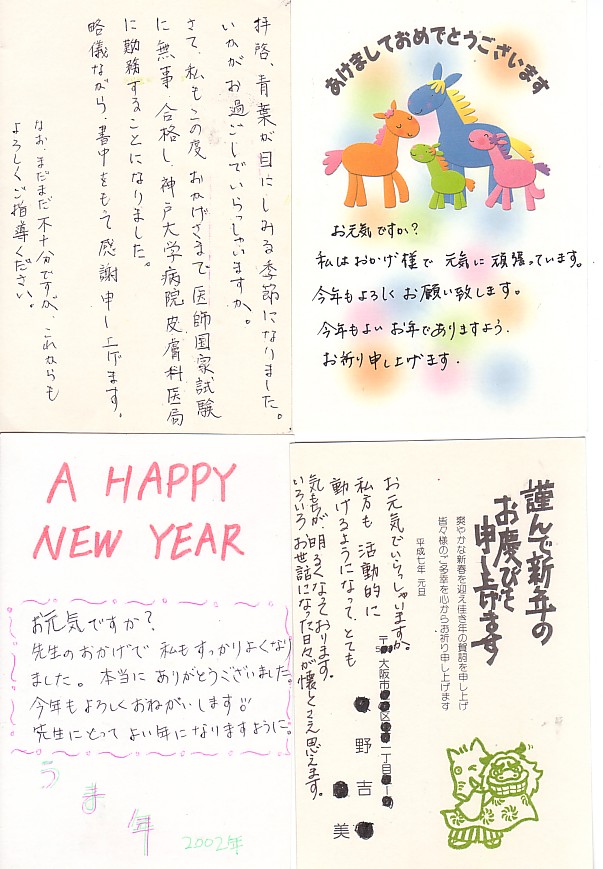 拝啓、青葉が目にしみる季節になりました。
いかがお過ごしでいらっしゃいますか。
さて、私もこの度、おかげさまで、医師国家試験
に無事、合格し、神戸大学病院皮膚科医局
に勤務することになりました。
略儀ながら、書中をもって感謝申し上げます。
なお、まだまだ不十分ですが、これからも
よろしくご指導ください。
あけましておめでとうございます
お元気ですか?
私はおかげ様で 元気に 頑張っています。
今年もよろしく お願い致します。
今年もよい お年でありますよう.
お祈り申し上げます.
A HAPPY
NEW YEAR
お元気ですか?
先生のおかげで 私もすっかりよくなり
ました。本当に ありがとうございました。
今年もよろしくおねがいします!!
先生にとって よい年になりますように。
うま年
2002年
謹んで新年の
お慶びを
申し上げます
爽やかな新春を迎え佳き年の賀詞を申し上げ
皆々様のご多幸を心からお祈り申し上げます
平成七年 元旦
お元気でいらっしゃいますか。
私方も 活動的に
動けるようになって、とても
気もちが、明るくなっております。
いろいろ、お世話になった日々が懐しくさえ思えます。
〒5 大阪市 区 一丁目
野 吉 美